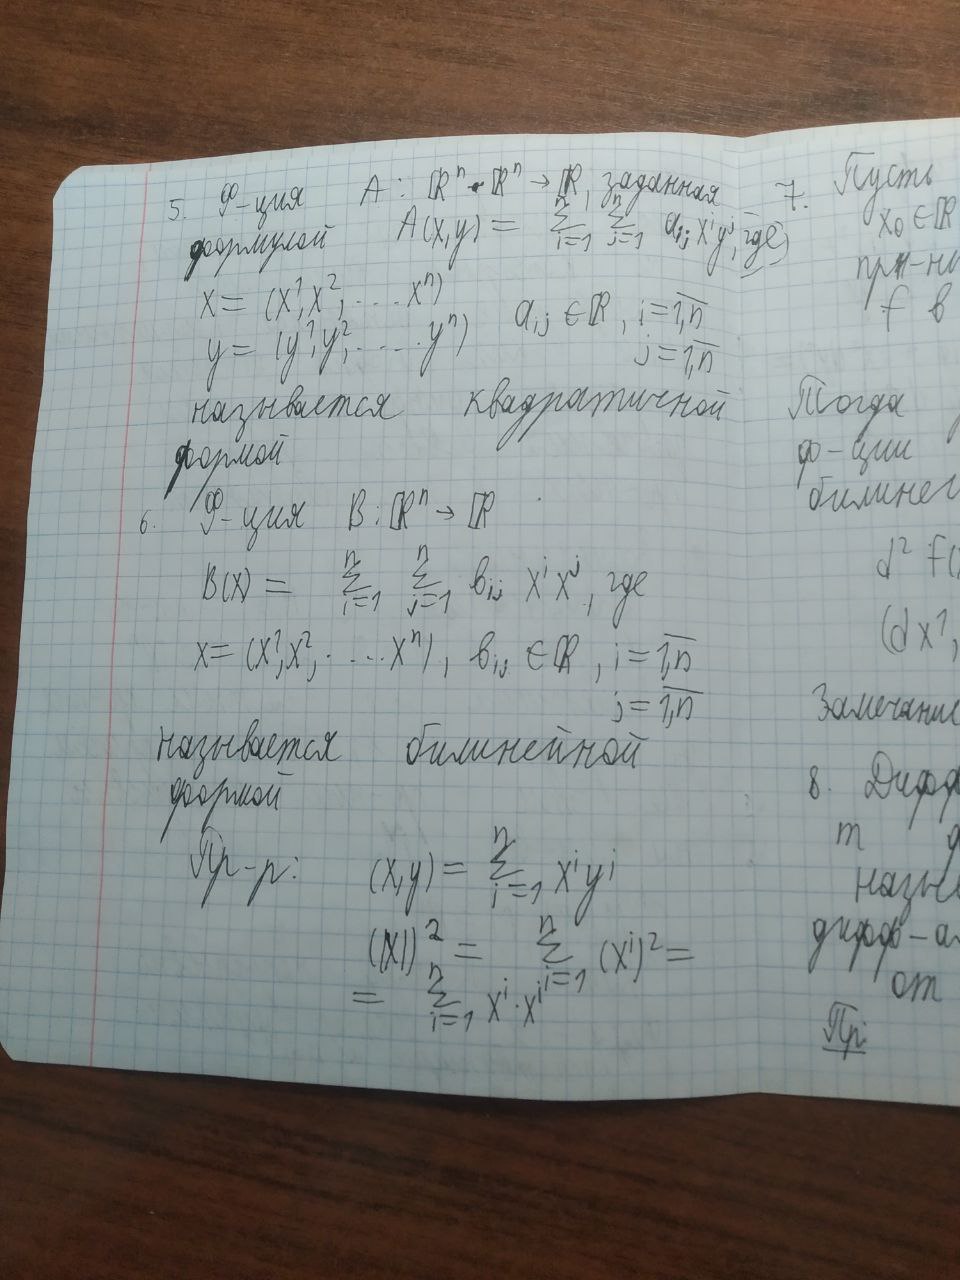 5. Ф-ция A: ℝⁿ · ℝⁿ → ℝ, заданная
формулой A(x,y) = ∑ⁿᵢ₌₁ ∑ⁿⱼ₌₁ aᵢⱼ xⁱyʲ, где
x = (x¹, x², ... xⁿ)
y = (y¹, y², ..... yⁿ) aᵢⱼ ∈ ℝ, i = 1,n̅
j = 1,n̅
называется квадратичной
формой
6. Ф-ция B: ℝⁿ → ℝ
B(x) = ∑ⁿᵢ₌₁ ∑ⁿⱼ₌₁ вᵢⱼ xⁱxʲ, где
x = (x¹, x², .... xⁿ), вᵢⱼ ∈ ℝ, i = 1,n̅
j = 1,n̅
называется билинейной
формой
Пр-р: (x,y) = ∑ⁿᵢ₌₁ xⁱyⁱ
(|x|)² = ∑ⁿᵢ₌₁ (xⁱ)² =
= ∑ⁿᵢ₌₁ xⁱ · xⁱ
7. Пусть
x₀ ∈ ℝ
f в
Тогда
ф-ции
билинег
d² f(
(dx¹,
Замечание
8. Дифф
m
назыв
дифф-а
от
Пр: